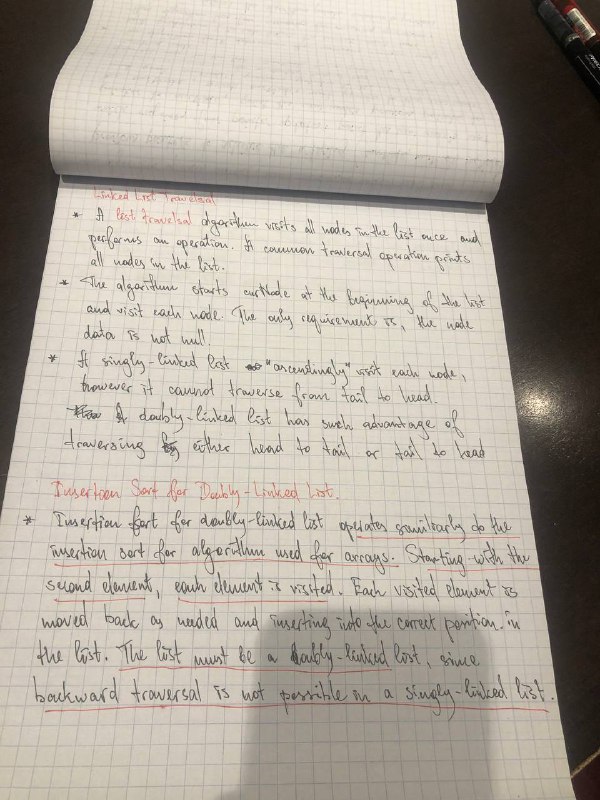 Linked List Traversal
* A list traversal algorithm visits all nodes in the list once and
performs an operation. A common traversal operation prints
all nodes in the list.
* The algorithm starts curNode at the beginning of the list
and visit each node. The only requirement is, the node
data is not null.
* A singly-linked list "ascendingly" visit each node,
however it cannot traverse from tail to head.
A doubly-linked list has such advantage of
traversing either head to tail or tail to head
Insertion Sort for Doubly-Linked List.
* Insertion sort for doubly-linked list operates similarly do the
insertion sort for algorithm used for arrays. Starting with the
second element, each element is visited. Each visited element is
moved back as needed and inserting into the correct position in
the list. The list must be a doubly-linked list, since
backward traversal is not possible in a singly-linked list.